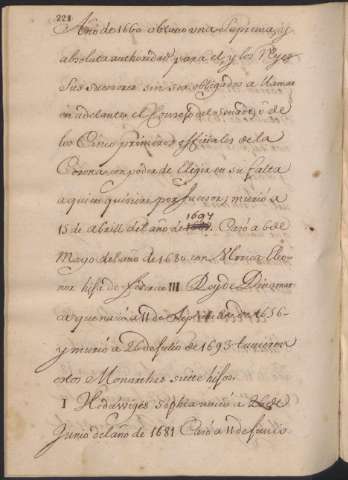 228
Año de 1660 obtuvo una suprema y
absoluta authoridad para el y los Reyes
sus successores sin ser obligados a llamar
en adelante el Consejo del Senado, q.e de
los Cinco primeros officiales de la
Corona con poder de Elegir en su falta
a quien quisiere por successor; murió a
15 de Abrill del año de 1697. Casó a 6 de
Mayo del año de 1680 con Ulrica Eleo
nor hija de Federico III Rey de Dinamar
ca que nació a 11 de Septiembre de 1656
y murió a 26 de Julio de 1693 tuvieron
estos Monarchas siete hijos.
I Hedawiges Sophia nació a 26 de
Junio del año de 1681 Casó a 11 de Junio